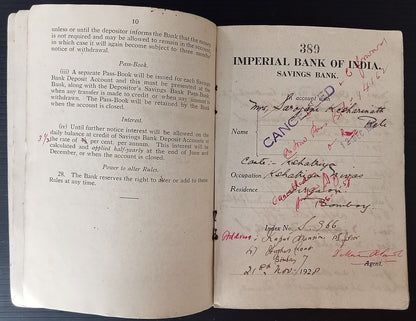 10
unless or until the depositor informs the Bank that the money
is not required and may be allowed to remain in the account
in which case it will again become subject to three months'
notice of withdrawal.
Pass-Book.
(iii) A separate Pass-Book will be issued for each Savings
Bank Deposit Account and this must be presented at the
Bank, along with the Depositor's Savings Bank Pass-Book
when any transfer is made to credit or when any interest is
drawn. The Pass-Book will be retained by the Bank
when the account is closed.
Interest.
(iv) Until further notice interest will be allowed on the
daily balance at credit of Savings Bank Deposit Accounts at
the rate of per cent. per annum. This interest will be
calculated and applied half-yearly at the end of June and
December, or when the account is closed.
Power to alter Rules.
28. The Bank reserves the right to alter or add to these
Rules at any time.
389
IMPERIAL BANK OF INDIA.
SAVINGS BANK.
In account with
CANCELLED
Mrs. Kedharnath
Name
Caste: Kshatriya
Occupation
Residence
Bombay
Index No. 966
Address:
47 Hughes Road
Bombay 7
21st Nov. 1928
Agent.